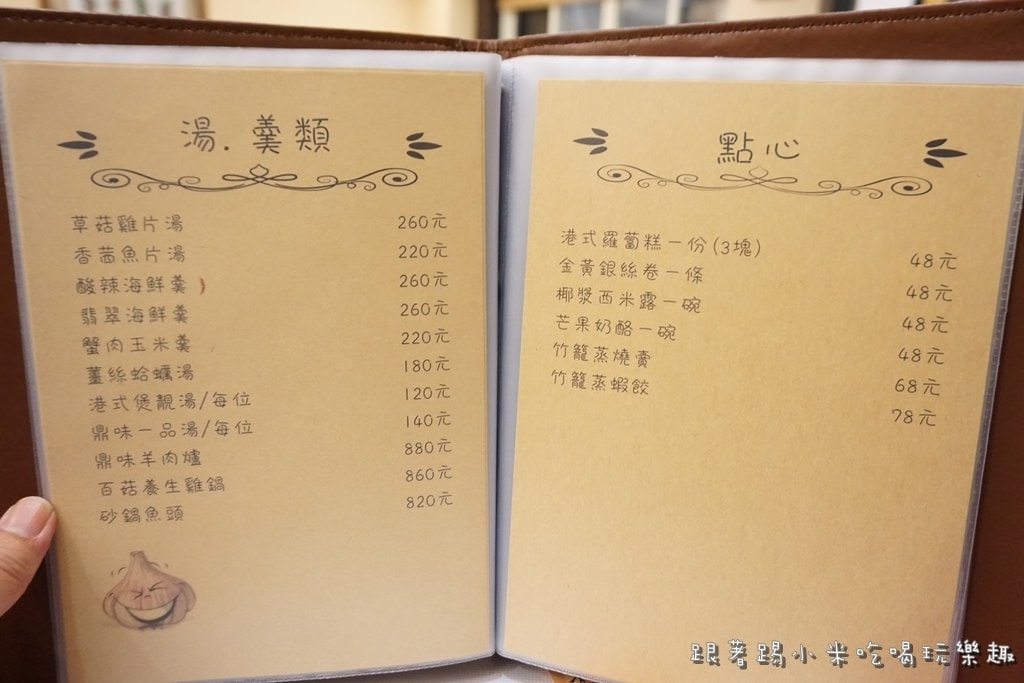 湯.羹類
草菇雞片湯 260元
香茜魚片湯 220元
酸辣海鮮羹 260元
翡翠海鮮羹 260元
蟹肉玉米羹 220元
薑絲蛤蠣湯 180元
港式煲靚湯/每位 120元
鼎味一品湯/每位 140元
鼎味羊肉爐 880元
百菇養生雞鍋 860元
砂鍋魚頭 820元
點心
港式羅蔔糕一份(3塊) 48元
金黃銀絲卷一條 48元
椰漿西米露一碗 48元
芒果奶酪一碗 48元
竹籠蒸燒賣 68元
竹籠蒸蝦餃 78元
跟著踢小米吃喝玩樂趣